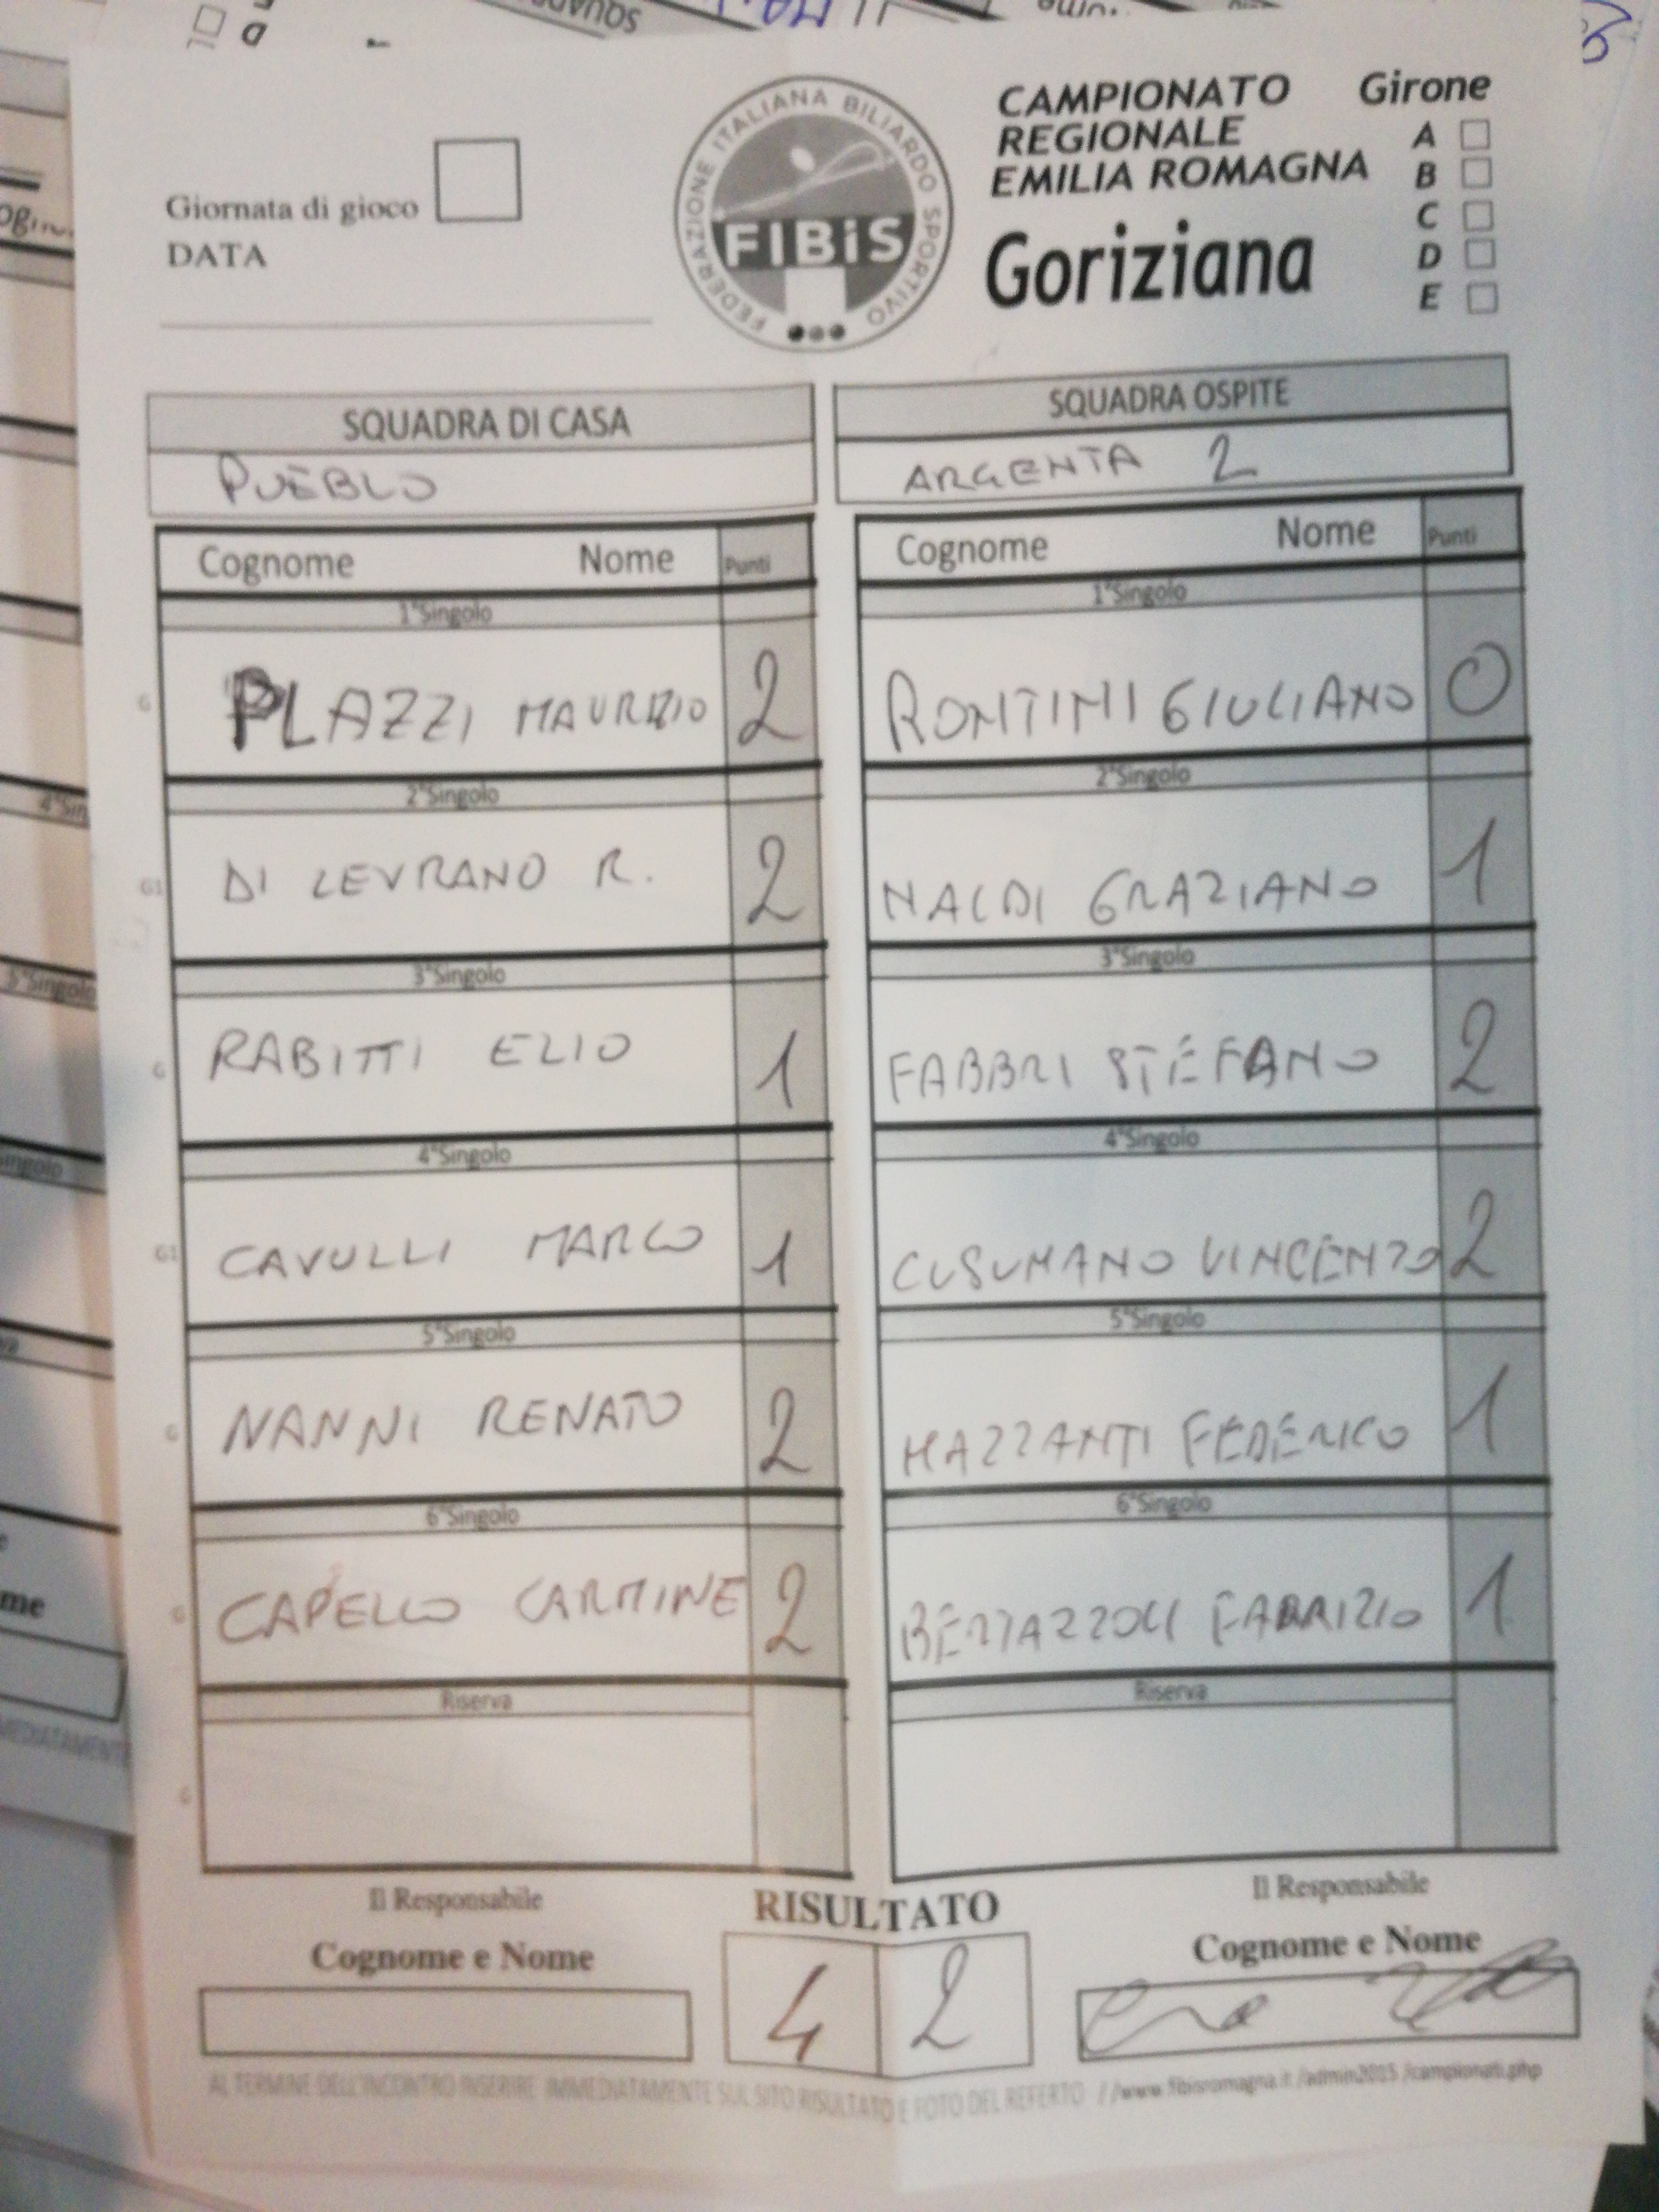 Giornata di gioco
DATA
FEDERAZIONE ITALIANA BILIARDO SPORTIVO
FIBiS
CAMPIONATO
REGIONALE
EMILIA ROMAGNA
Goriziana
Girone
A
B
C
D
E
SQUADRA DI CASA
PUEBLO
SQUADRA OSPITE
ARGENTA 2
Cognome Nome Punti
Cognome Nome Punti
1°Singolo
1°Singolo
G PLAZZI MAURIZIO 2
RONTINI GIULIANO 0
2°Singolo
2°Singolo
G1 DI LEVRANO R. 2
NALDI GRAZIANO 1
3°Singolo
3°Singolo
G RABITTI ELIO 1
FABBRI STEFANO 2
4°Singolo
4°Singolo
G1 CAVULLI MARCO 1
CUSUMANO VINCENZO 2
5°Singolo
5°Singolo
G NANNI RENATO 2
MAZZANTI FEDERICO 1
6°Singolo
6°Singolo
G CAPELLO CARMINE 2
FABRIZIO 1
Riserva
Riserva
G
Il Responsabile
Cognome e Nome
RISULTATO
4 2
Il Responsabile
Cognome e Nome
AL TERMINE DELL'INCONTRO INSERIRE IMMEDIATAMENTE SUL SITO RISULTATO E FOTO DEL REFERTO //www.fibisromagna.it/admin2015/campionati.php